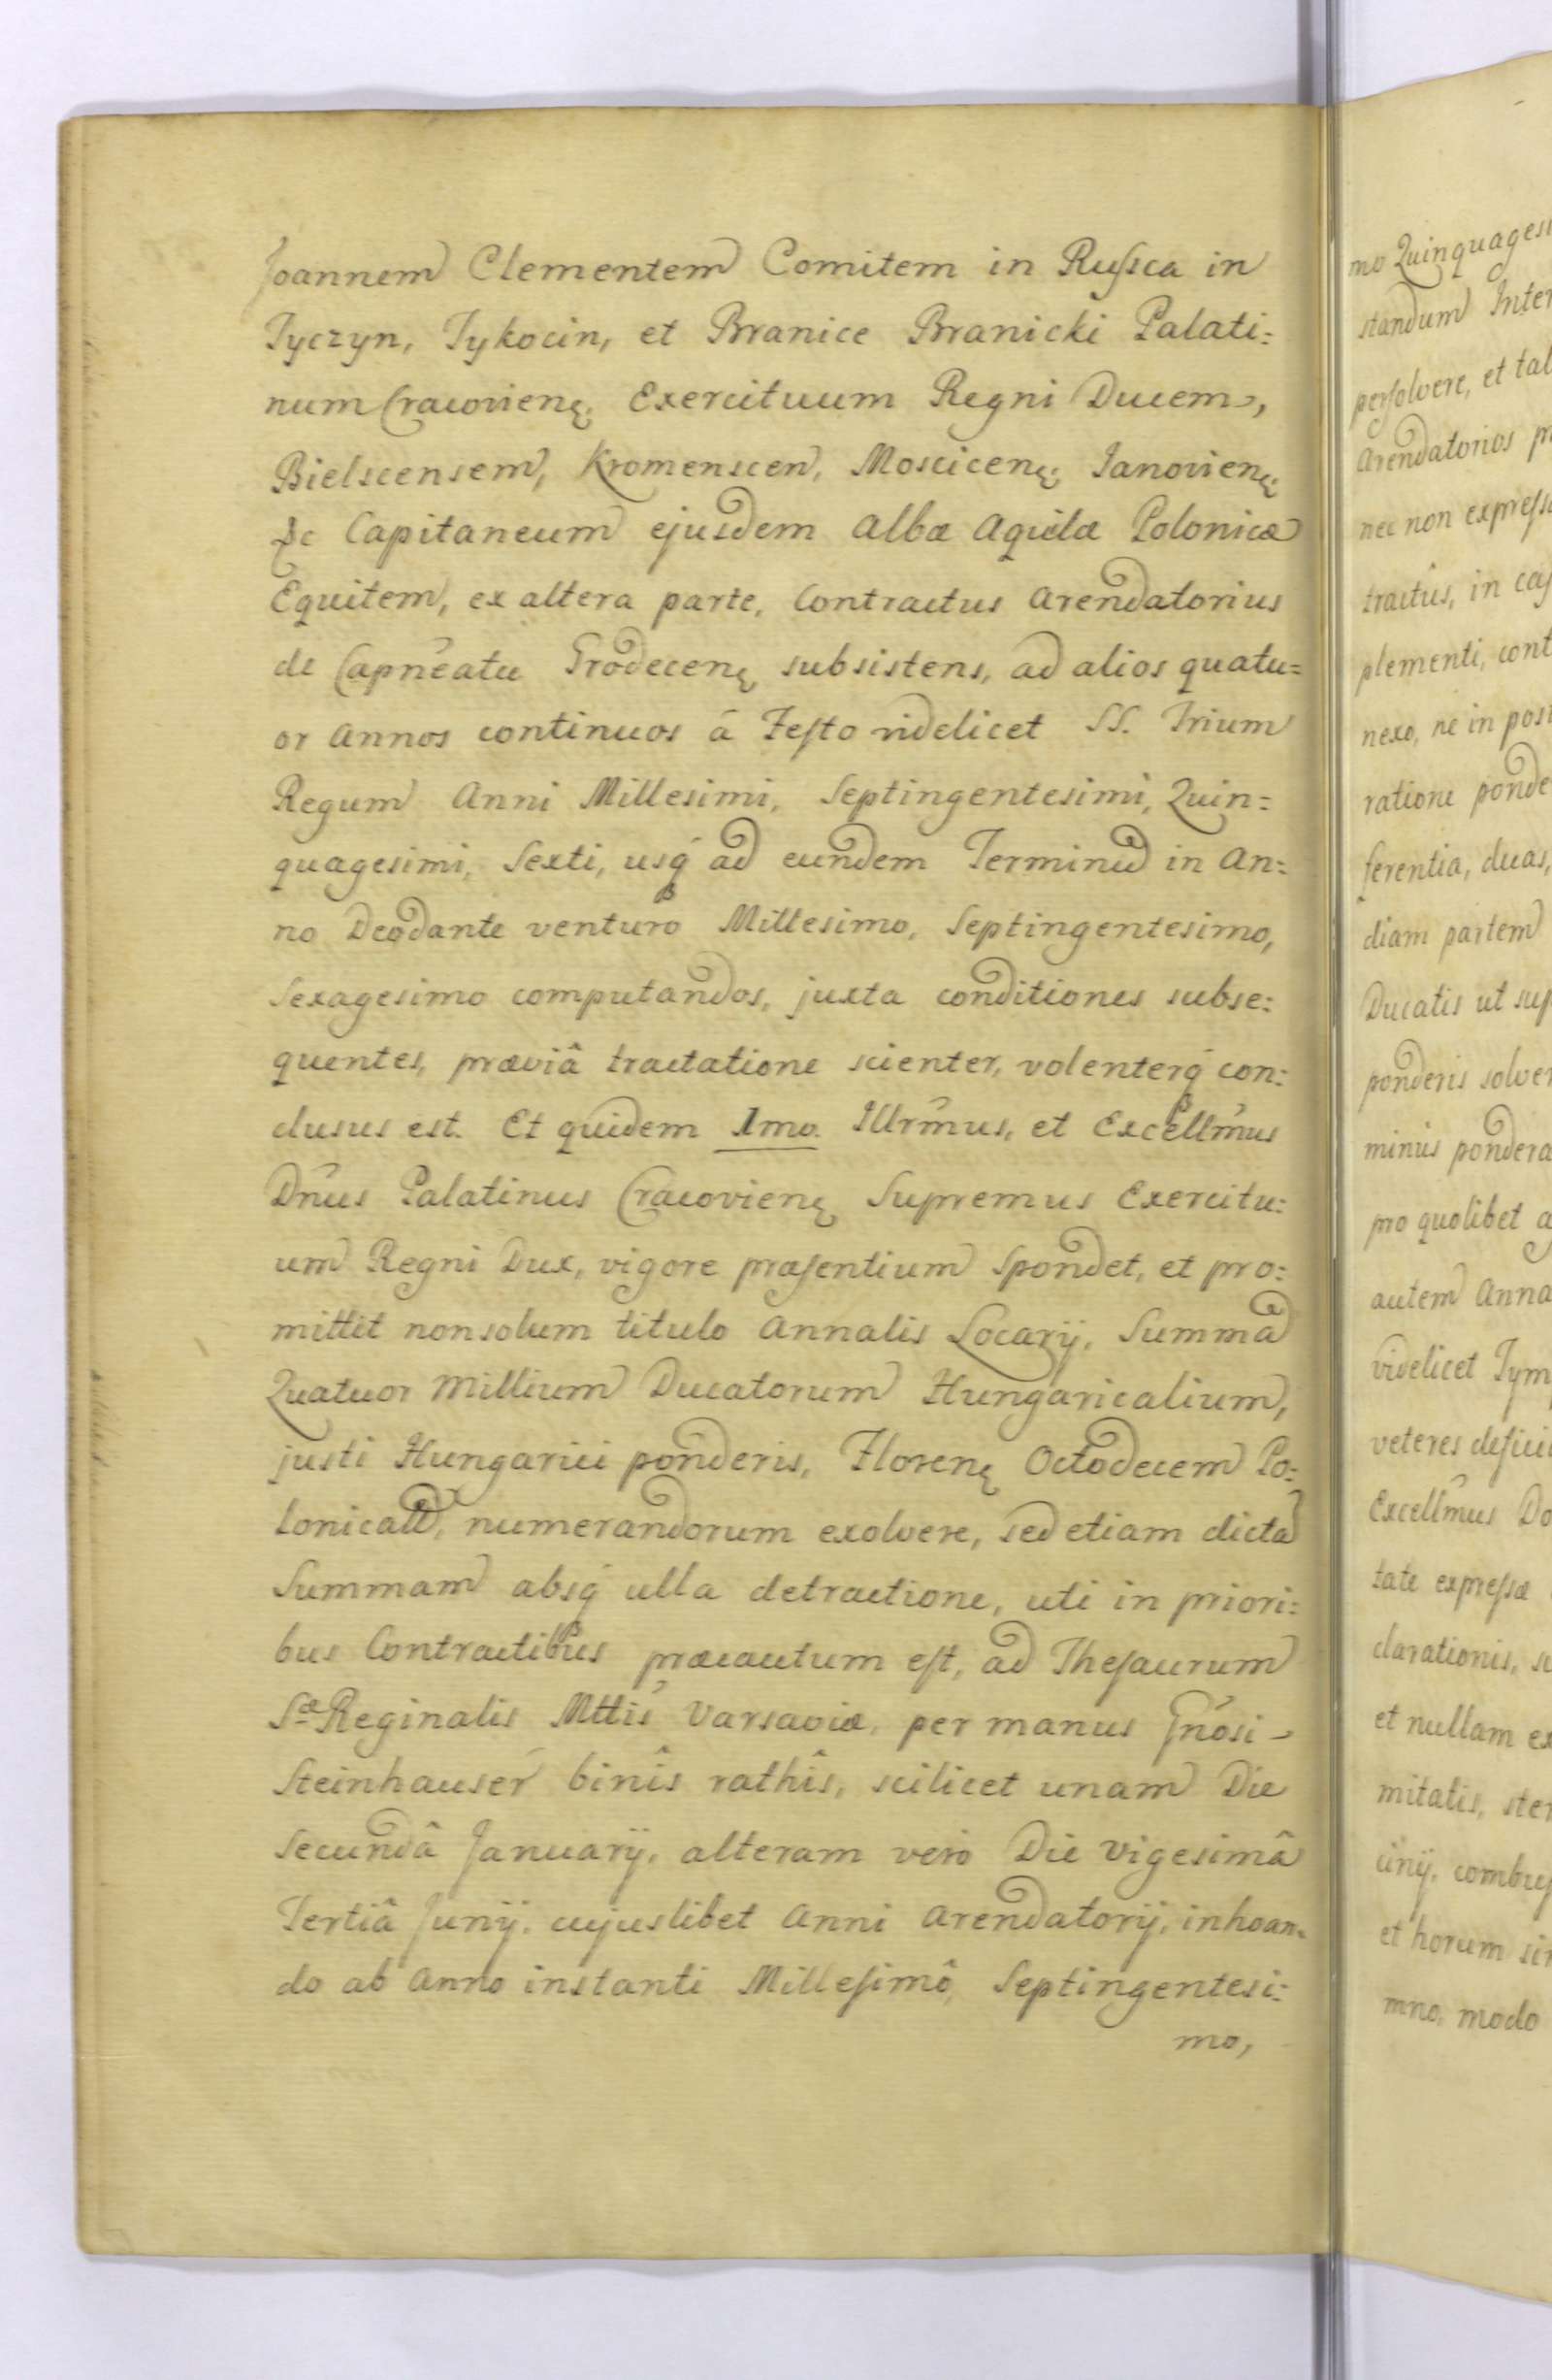 Joannem Clementem Comitem in Ruſsca in
Tyczyn, Tykocin, et Branice Branicki Palati:
num Cracovienę. Exercituum Regni Ducem,
Bielscensem, Kromenscen, Moscicenę. Janovienę.
&c Capitaneum ejusdem Albæ Aquilæ Polonicæ
Equitem, ex altera parte, Contractus Arendatorius
de Capneatu Grodecenę subsistens, ad alios quatu=
or Annos continuos á Feſto videlicet SS. Trium
Regum Anni Millesimi, Septingentesimi, Quin=
quagesimi, Sexti, usq́ ad eundem Terminū in An:
no Deodante venturo Millesimo, Septingentesimo,
Sexagesimo computandos, juxta conditiones subse:
quentes, præviâ tractatione scienter, volenterq́ con:
clusus est. Et quidem 1mo. Illrm̃us, et Excellm̃us
Dñus Palatinus Cracovienę Supremus Exercitu:
um Regni Dux, vigore præſentium Spondet, et pro:
mittit nonsolum titulo Annalis Locarij, Summã
Quatuor Millium Ducatorum Hungaricalium,
justi Hungarici ponderis, Florenę Octodecem Po:
lonicaliũ, numerandorum exolvere, sed etiam dictã
Summam absq́ ulla detractione, uti in priori:
bus Contractibus præcautum eſt, ad Theſaurum
Sæ Reginalis Mttis Varsaviæ, per manus Gñosi
Steinhauser binîs rathîs, scilicet unam Die
Secundâ Januarij, alteram vero Die Vigesimâ
Tertiâ Junij, cujuslibet Anni Arendatorij, inhoan:
do ab Anno instanti Milleſimô, Septingentesi:
mo,
mo Quinquagesi
standum Inter
perſolvere, et tal
Arendatorios p
nec non expreſs
tractûs, in caſ
plementi, cont
nexo, ne in post
ratione ponde
ferentia, duas,
diam partem
Ducatis ut sup
ponderis solver
minus pondera
pro quolibet a
autem Anna
videlicet Tym
veteres defici
Excellm̃us Do
tate expreſsæ
clarationis, su
et nullam ex
mitatis, ster
ijnij, combuſ
et horum sin
mno, modo